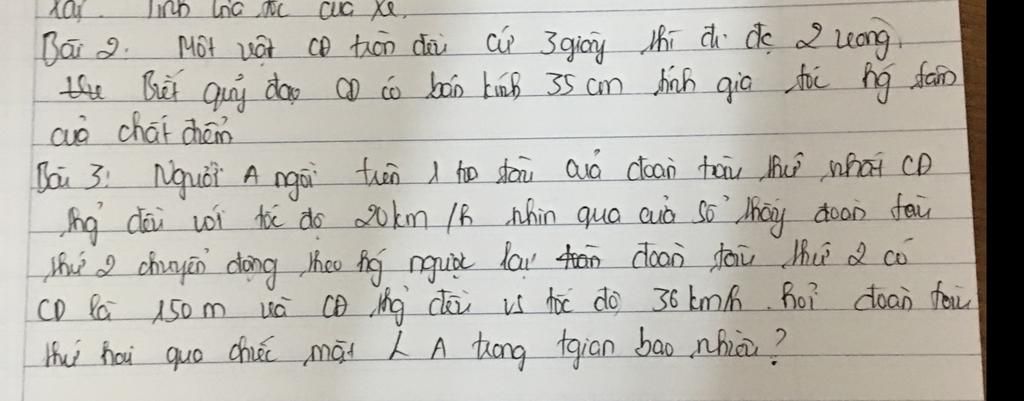 xạy. Tính gia tốc của xe.
Bài 2. Một vật CĐ tròn đều cứ 3 giây thì đi đc 2 vòng.
Biết quỹ đạo CĐ có bán kính 35 cm tính gia tốc hg tâm
của chất điểm
Bài 3: Người A ngồi trên 1 toa tàu của đoàn tàu thứ nhất CĐ
thg đều với tốc độ 20km/h nhìn qua cửa sổ thấy đoàn tàu
thứ 2 chuyển động theo hg ngược lại đoàn tàu thứ 2 có
CD là 150 m và CĐ thg đều vs tốc độ 36 km/h. hỏi đoàn tàu
thứ hai qua chiếc mặt A trong tgian bao nhiêu?